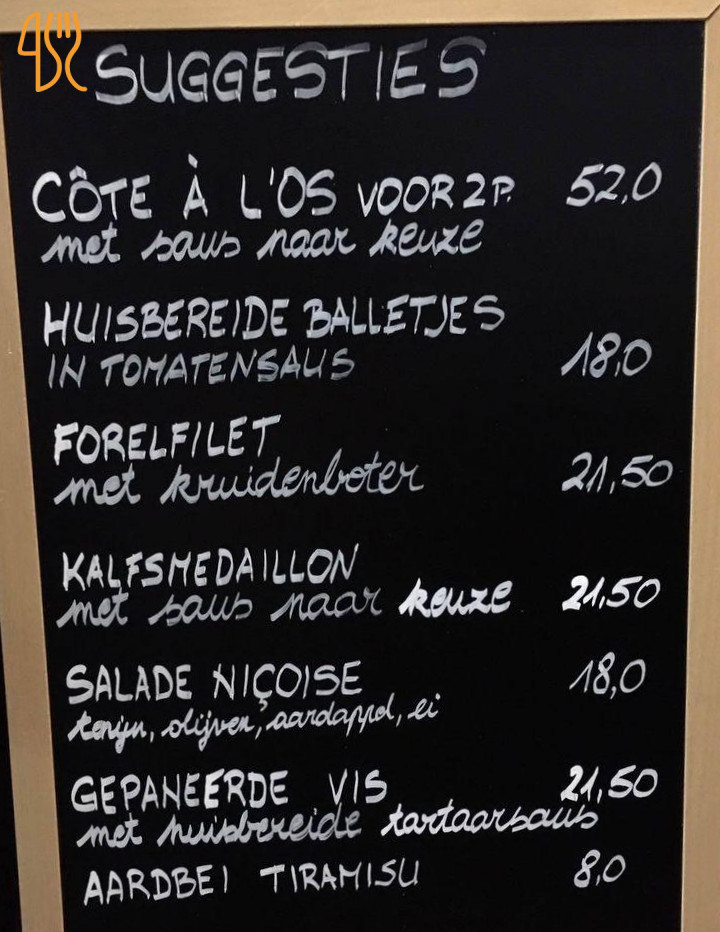 SUGGESTIES
CÔTE À L'OS VOOR 2P. 52,0
met saus naar keuze
HUISBEREIDE BALLETJES
IN TOMATENSAUS 18,0
FORELFILET
met kruidenboter 21,50
KALFSMEDAILLON
met saus naar keuze 21,50
SALADE NIÇOISE 18,0
tonijn, olijven, aardappel, ei
GEPANEERDE VIS 21,50
met huisbereide tartaarsaus
AARDBEI TIRAMISU 8,0